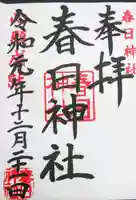 春日神社
奉拝
春日神社
令和元年十二月二十一日